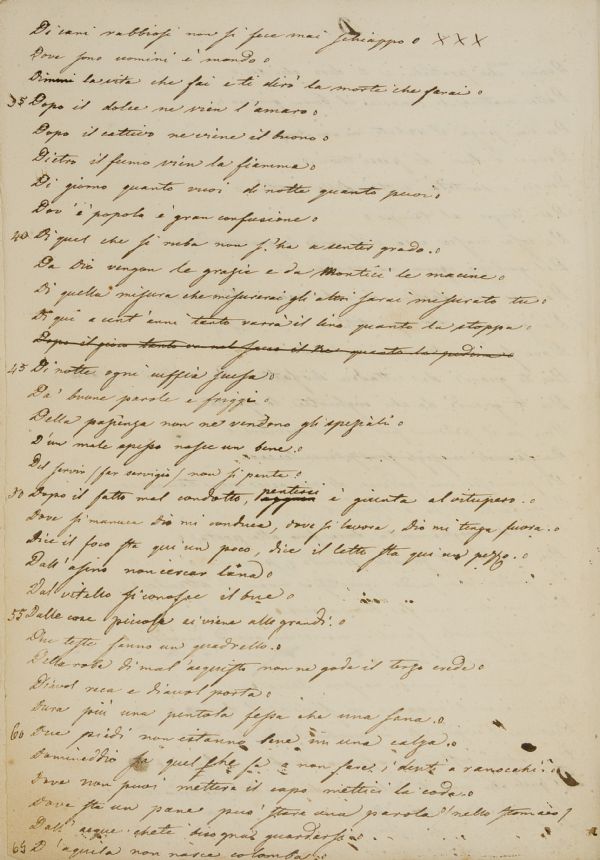 Di cani rabbiosi non si fece mai schiappo. XXX
Dove sono uomini è mondo.
Dimmi la vita che fai e ti dirò la morte che farai.
35 Dopo il dolce ne vien l'amaro.
Dopo il cattivo ne viene il buono.
Dietro il fumo vien la fiamma.
Di giorno quanto vuoi di notte quanto puoi.
Dov'è popolo è gran confusione.
40 Di quel che si ruba non s'ha a sentir grado.
Da Dio vengon le grazie e da Montici le macine.
Di quella misura che misurerai gli altri sarai misurato tu.
Di qui a cent'anni tanto varrà il lino quanto la stoppa.
Dopo il gioco tanto va nel sacco il Re quanto la pedina.
45 Di notte ogni cuffia
Da' buone parole e friggi.
Della pazienza non ne vendono gli speziali.
D'un male spesso nasce un bene.
Del servir (far servigio) non si penta.
50 Dopo il fatto mal condotto, pentirsi è giunta al vitupero.
Dove si manuca Dio mi conduca, dove si lavora, Dio mi tenga fuora.
Dice il foco sta qui un poco, dice il letto sta qui un pezzo.
Dall'asino non cercar lana.
Dal vitello si conosce il bue.
55 Dalle cose piccole si viene alle grandi.
Due teste fanno un quadrello.
Della roba di mal acquisto non ne gode il terzo erede.
Diavol reca e diavol porta.
Dura più una pentola fessa che una sana.
60 Due piedi non istanno bene in una calza.
Domineddio sa quel che fa a non fare i denti a ranocchi.
Dove non puoi mettere il capo mettici la coda.
Dove sta un pane può stare una parola (nello stomaco)
Dall'acque chete bisogna guardarsi.
65 D'aquila non nasce colomba.